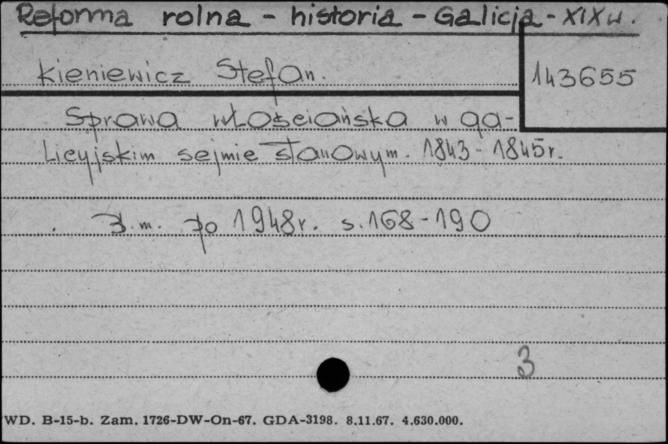 Reforma rolna - historia - Galicja - XIX w.
Kieniewicz Stefan.
143655
Sprawa włościańska w ga-
licyjskim sejmie stanowym. 1843 - 1845r.
B.m. po 1948r. s.168-190
3
WD. B-15-b. Zam. 1726-DW-On-67. GDA-3198. 8.11.67. 4.630.000.